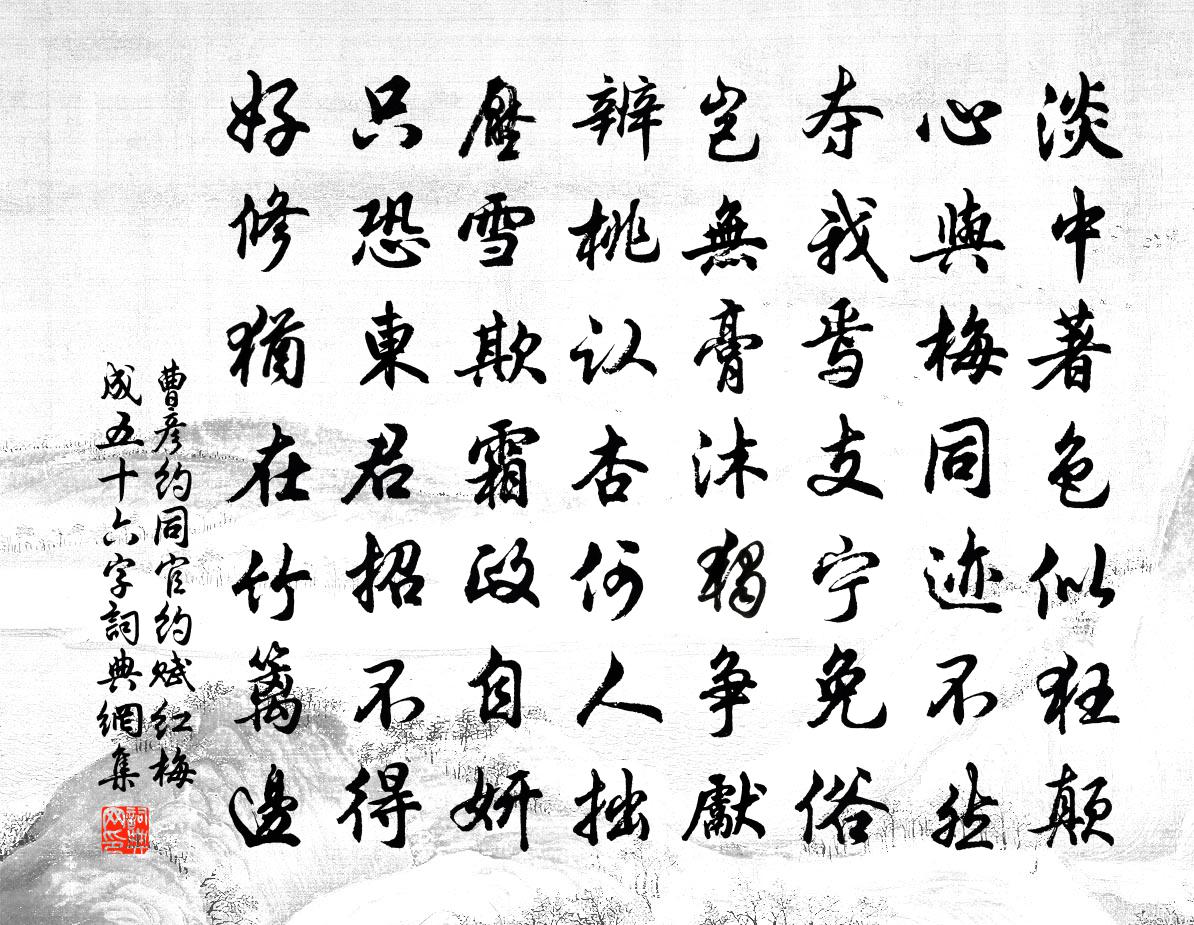 淡中著色似狂顛
心與梅同迹不然
夺我焉支宁免俗
岂無膏沐獨争獻
辨桃认杏何人拙
壓雪欺霜政自妍
只恐東君招不得
好修猶在竹篱邊
曹彦约同官约赋红梅
成五十六字詞典網集